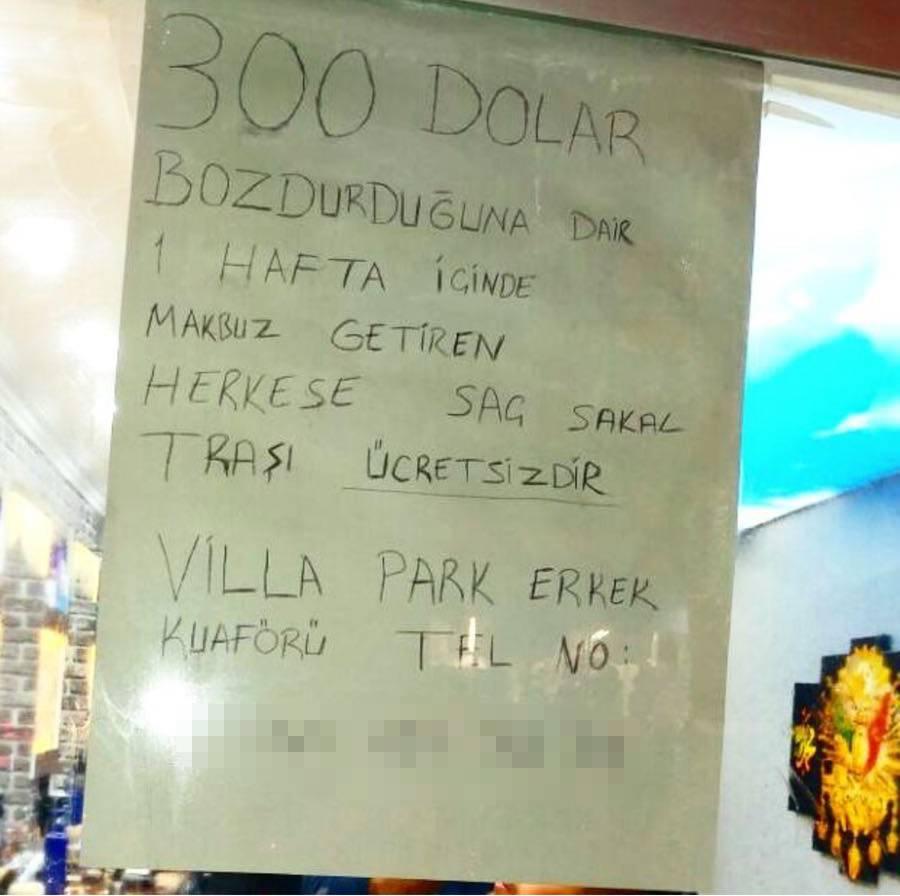 300 DOLAR
BOZDURDUĞUNA DAİR
1 HAFTA İÇİNDE
MAKBUZ GETİREN
HERKESE SAÇ SAKAL
TRAŞI ÜCRETSİZDİR
VİLLA PARK ERKEK
KUAFÖRÜ TEL NO: